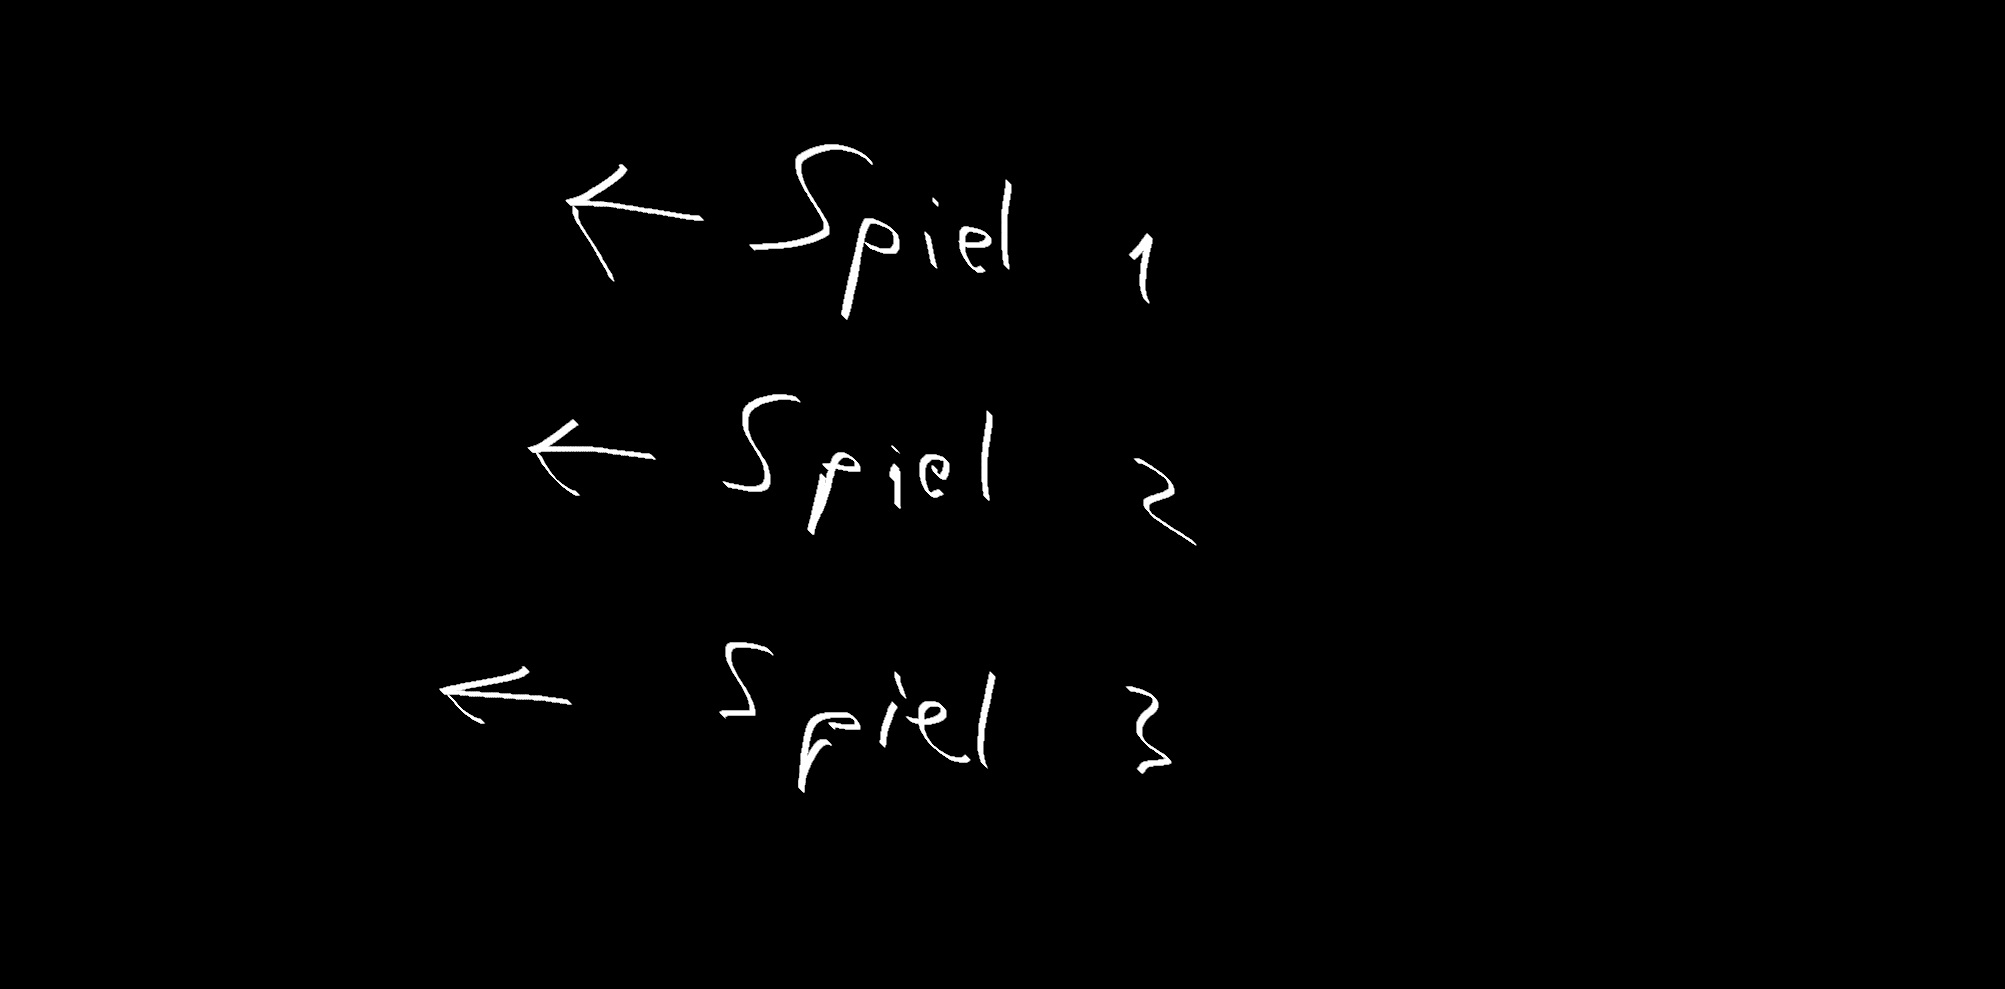 ← Spiel 1
← Spiel 2
← Spiel 3